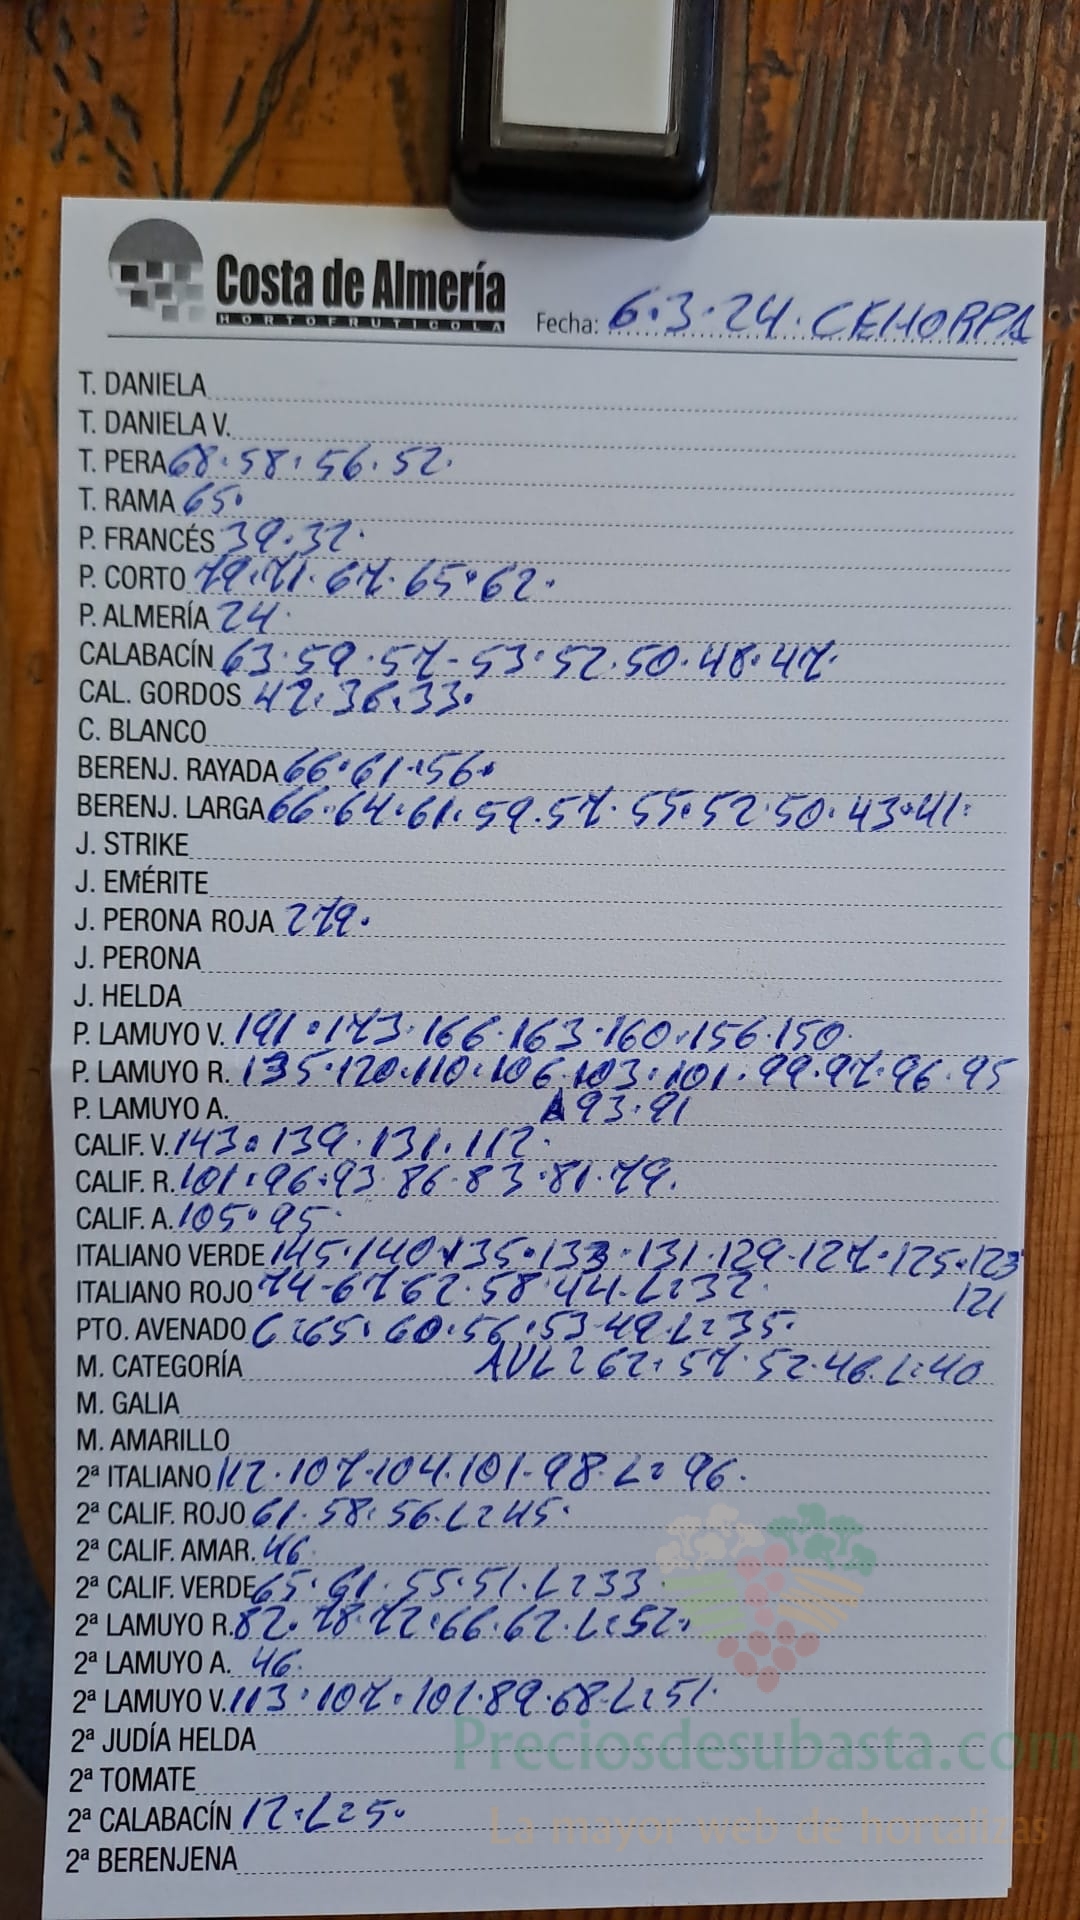 Costa de Almería
HORTOFRUTICOLA
Fecha: 6.3.24. CEHORPA
T. DANIELA
T. DANIELA V.
T. PERA 68.58.56.52.
T. RAMA 65.
P. FRANCÉS 39.32.
P. CORTO 79.71.67.65.62.
P. ALMERÍA 24.
CALABACÍN 63.59.57-53.52.50.48.47.
CAL. GORDOS 42.36.33.
C. BLANCO
BERENJ. RAYADA 66.61.56.
BERENJ. LARGA 66.64.61.59.57.55.52.50.43.41.
J. STRIKE
J. EMÉRITE
J. PERONA ROJA 279.
J. PERONA
J. HELDA
P. LAMUYO V. 191.173.166.163.160.156.150.
P. LAMUYO R. 135.120.110.106.103.101.99.97.96.95
P. LAMUYO A. 93.91
CALIF. V. 143.139.131.112.
CALIF. R. 101.96.93.86.83.81.79.
CALIF. A. 105.95.
ITALIANO VERDE 145.140.135.133.131.129-127.125.123
ITALIANO ROJO 74-67.62.58.44.L:32. 121
PTO. AVENADO C:65.60.56.53-49.L:35.
M. CATEGORÍA AVL:62.57.52.46.L:40
M. GALIA
M. AMARILLO
2ª ITALIANO 112.107.104.101-98.L:96.
2ª CALIF. ROJO 61.58.56.L:45.
2ª CALIF. AMAR. 46.
2ª CALIF. VERDE 65.61.55.51.L:33.
2ª LAMUYO R. 82.78.72.66.62.L:52.
2ª LAMUYO A. 46.
2ª LAMUYO V. 113.107.101.89.68.L:51.
2ª JUDÍA HELDA
Preciosdesubasta.com
2ª TOMATE
2ª CALABACÍN 12.L:5.
La mayor web de hortalizas
2ª BERENJENA